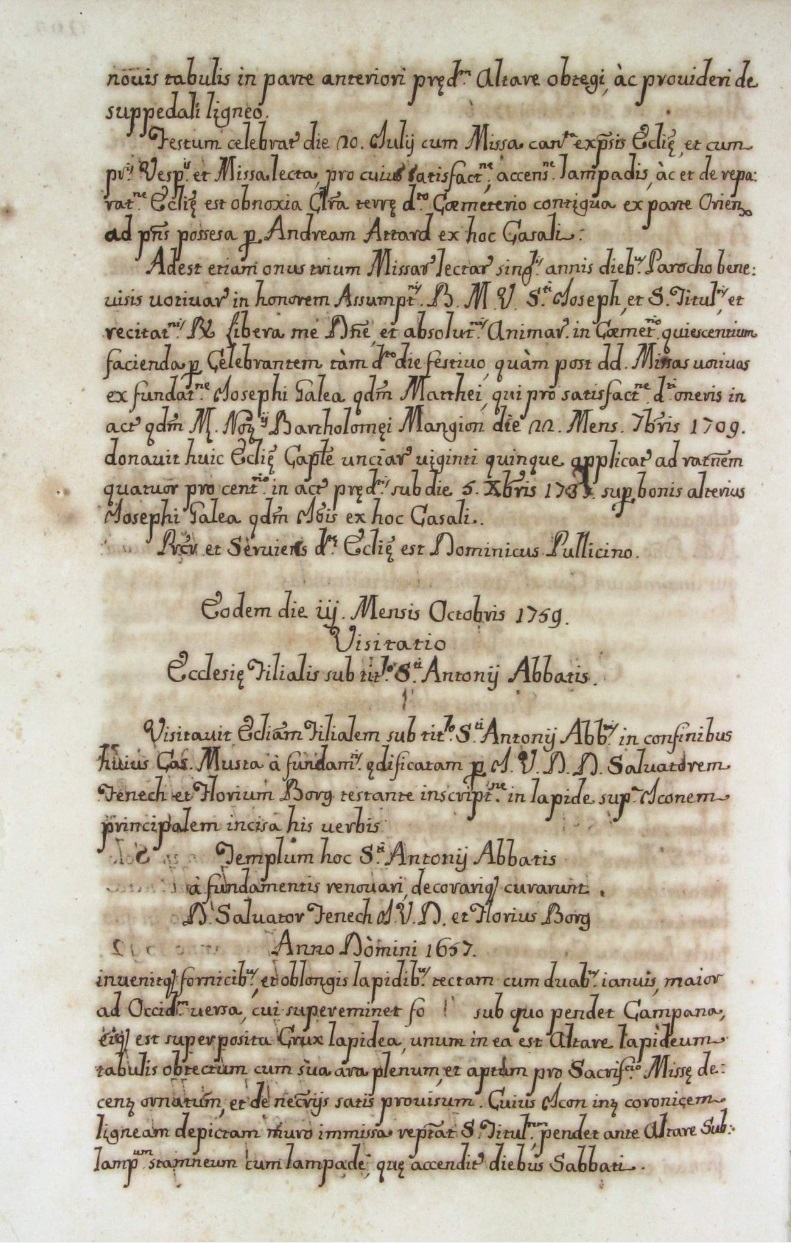 nouis tabulis in parte anteriori pręd.m Altare obtegi, àc prouideri de
suppedali ligneo.
Festum celebrat' die 20. Julij cum Missa cant.a expẽsis Eclię, et cum
pr.is Vesp.is et Missa lecta, pro cuius satisfact.ne, àccens.ne lampadis, àc et de repa:
rat.ne Eclię est obnoxia Clr̃a terrę d.to Cœmeterio contigua ex parte Orien.
ad pñs possesa p. Andream Attard ex hoc Casali.
Adest etiam onus trium Missar' lectar' sing.s annis dieb.s Parocho bene:
uisis uotiuar' in honorem Assumpt.nis B. M. V. S.ti Joseph, et S. Titul.ris et
recitat.nis libera me Dñe, et absolut.nis Animar. in Cœmet.rio quiescentium
facienda p. Celebrantem tàm d.to die festiuo, quàm post dd. Missas uotiuas
ex fundat.ne Josephi Galea qdm̃ Matthei, qui pro satisfact.ne d.ti oneris in
act' qdm̃ M. Not.rij Bartholomęi Mangion die 22. Mens. 7bris 1709.
donauit huic Eclię Caple unciar' uiginti quinque applicat' ad rat̃nem
quatuor pro cent.rio in act' pręd. sub die 5. Xbris sup. bonis alterius
Josephi Galea qdm̃ ex hoc Casali.
et Seruiens d.tę Eclię est Dominicus Pullicino.
Eodem die iij. Mensis Octobris 1759.
Visitatio
Ecclesię Filialis sub tit.lo S.ti Antonij Abbatis.
Visitauit Ecliam Filialem sub tit.lo S.ti Antonij Abb.tis in confinibus
huius Cas. Musta à fundam.tis ędificatam p. J. V. D. D. Saluatorem
Fenech et Florium Borg testante inscript.ne in lapide sup. Iconem
principalem incisa his uerbis
Templum hoc S.ti Antonij Abbatis
à fundamentis renouari, decorariq3 curarunt
D. Saluator Fenech J. V. D. et Florius Borg
Anno Dòmini 1657.
inuenitq3 fornicib.s, et oblongis lapidib.s tectam cum duab.s ianuis, maior
ad Occid.tem uersa, cui supereminet fo sub quo pendet Campana,
eisq3 est superposita Crux lapidea, unum in ea est Altare lapideum
tabulis obtectum cum sua ara plenum, et aptum pro Sacrif.cio Missę de:
cent3 ornatum, et de nec̃rijs satis prouisum. Cuius Icon int3 coronicem
ligneam depictam muro immissa reptãt S. Titul.rem, pendet ante Altare Sub:
lamp.um stamneum cum lampade, quę accendit' diebus Sabbati.